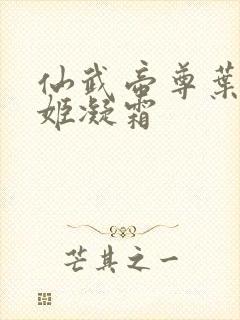 仙武帝尊葉
姬凝霜
芒其之一